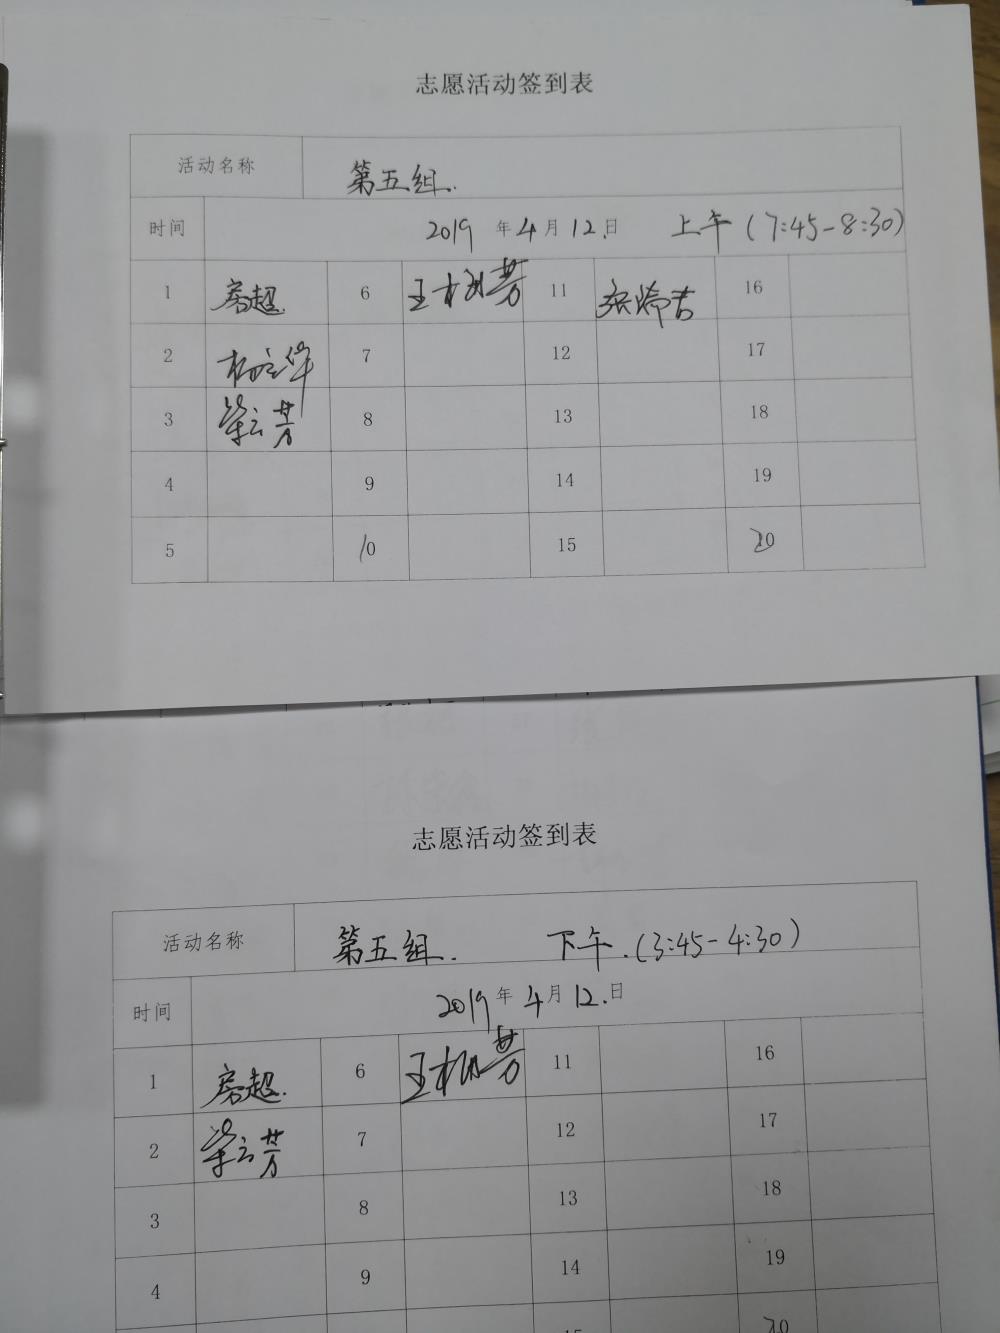 志愿活动签到表
活动名称 第五组.
时间 2019 年 4 月 12. 日 上午 (7:45-8:30)
1 房超. 6 王桃芳 11 张常吉 16
2 杨立华 7 12 17
3 梁云芳 8 13 18
4 9 14 19
5 10 15 20
志愿活动签到表
活动名称 第五组. 下午.(3:45-4:30)
时间 2019 年 4 月 12. 日
1 房超. 6 王桃芳 11 16
2 梁云芳 7 12 17
3 8 13 18
4 9 14 19
15 20